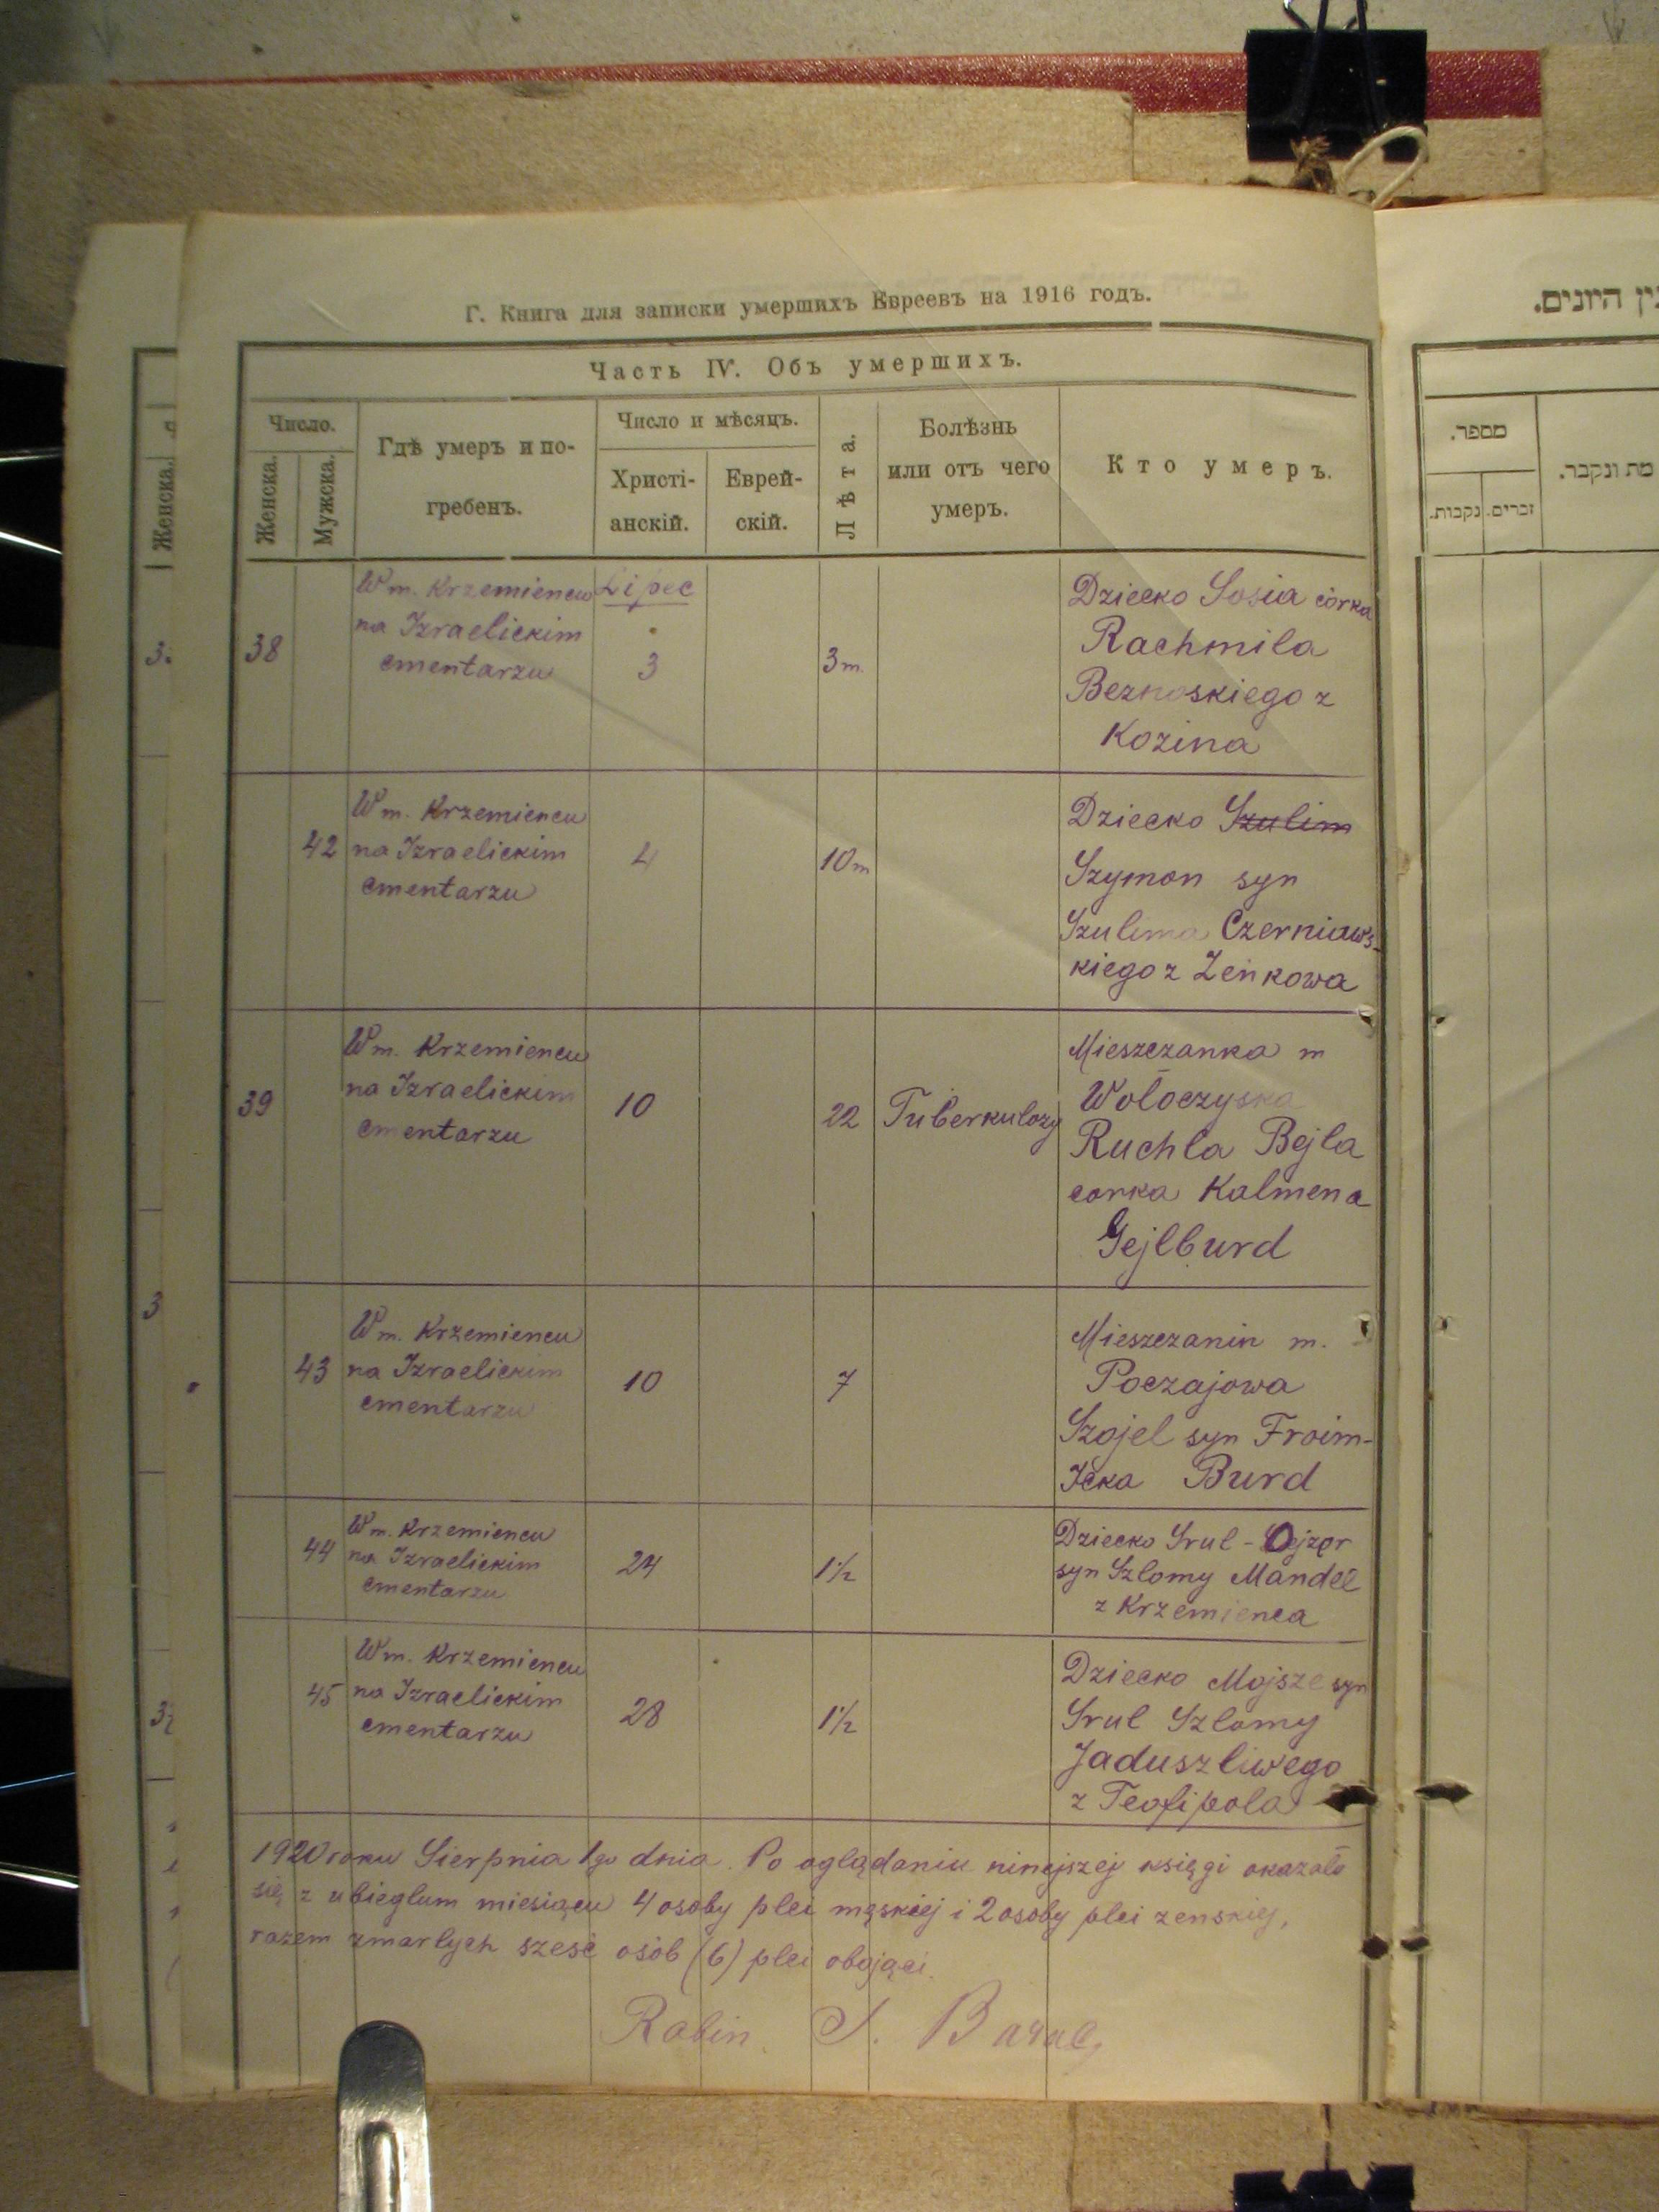 Г. Книга для записки умершихъ Евреевъ на 1916 годъ.
Часть IV. Объ умершихъ.
Число.
Женска.
Мужска.
Гдѣ умеръ и по-
гребенъ.
Число и мѣсяцъ.
Христі-
анскій.
Еврей-
скій.
Лѣта.
Болѣзнь
или отъ чего
умеръ.
Кто умеръ.
38
W m. Krzemiencu
na Izraelickim
cmentarzu
Lipec
3
3 m.
Dziecko Sosia córka
Rachmila
Beznoskiego z
Kozina
42
W m. Krzemiencu
na Izraelickim
cmentarzu
4
10 m
Dziecko Szulim
Szymon syn
Szulima Czerniaws-
kiego z Zeńkowa
39
W m. Krzemiencu
na Izraelickim
cmentarzu
10
22
Tuberkulozy
Mieszczanka m
Woloczyska
Ruchla Bejla
corka Kalmena
Gejlburd
43
W m. Krzemiencu
na Izraelickim
cmentarzu
10
7
Mieszczanin m.
Poczajowa
Szojel syn Froim-
Icka Burd
44
W m. Krzemiencu
na Izraelickim
cmentarzu
24
1½
Dziecko Srul - Lejzor
syn Szlomy Mandel
z Krzemienca
45
W m. Krzemiencu
na Izraelickim
cmentarzu
28
1½
Dziecko Mojsze syn
Srul Szlomy
Jaduszliwego
z Teofipola
1920 roku Sierpnia 1go dnia. Po oglądaniu ninejszej księgi okazało
się z ubieglum miesiącu 4 osoby plei męskiej i 2 osoby plei zenskiej,
razem zmarlych sześć osób (6) plei obojąei.
Rabin S.
Женска.
מספר.
זכרים.
נקבות.
מת ונקבר.